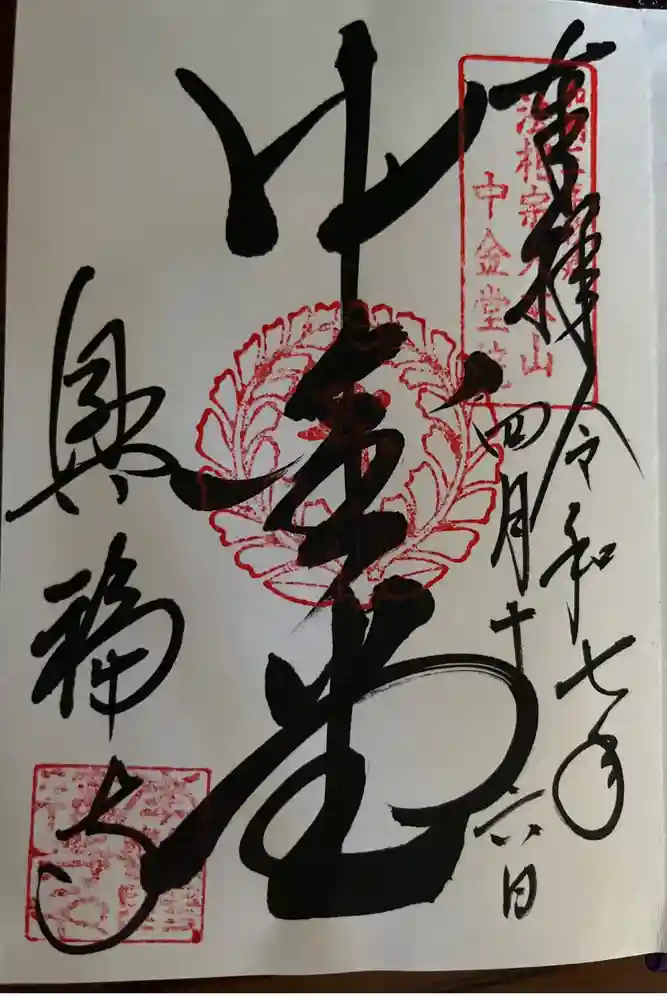 奉拝 令和七年
四月十六日
中金堂
興福寺
法相宗大本山
中金堂院